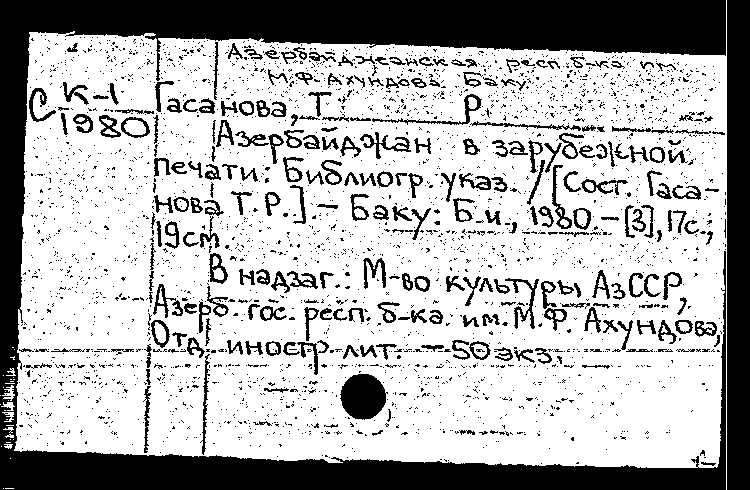 Азербайджанская респ. б-ка им.
М.Ф. Ахундова Баку
С К-1
1980
Гасанова, Т. Р.
Азербайджан в зарубежной
печати: Библиогр. указ. / [Сост. Гаса-
нова Т.Р.]. — Баку: Б.и., 1980. — [3], 17с.;
19см.
В надзаг.: М-во культуры АзССР,
Азерб. гос. респ. б-ка им. М.Ф. Ахундова,
Отд. иностр. лит. — 50 экз.